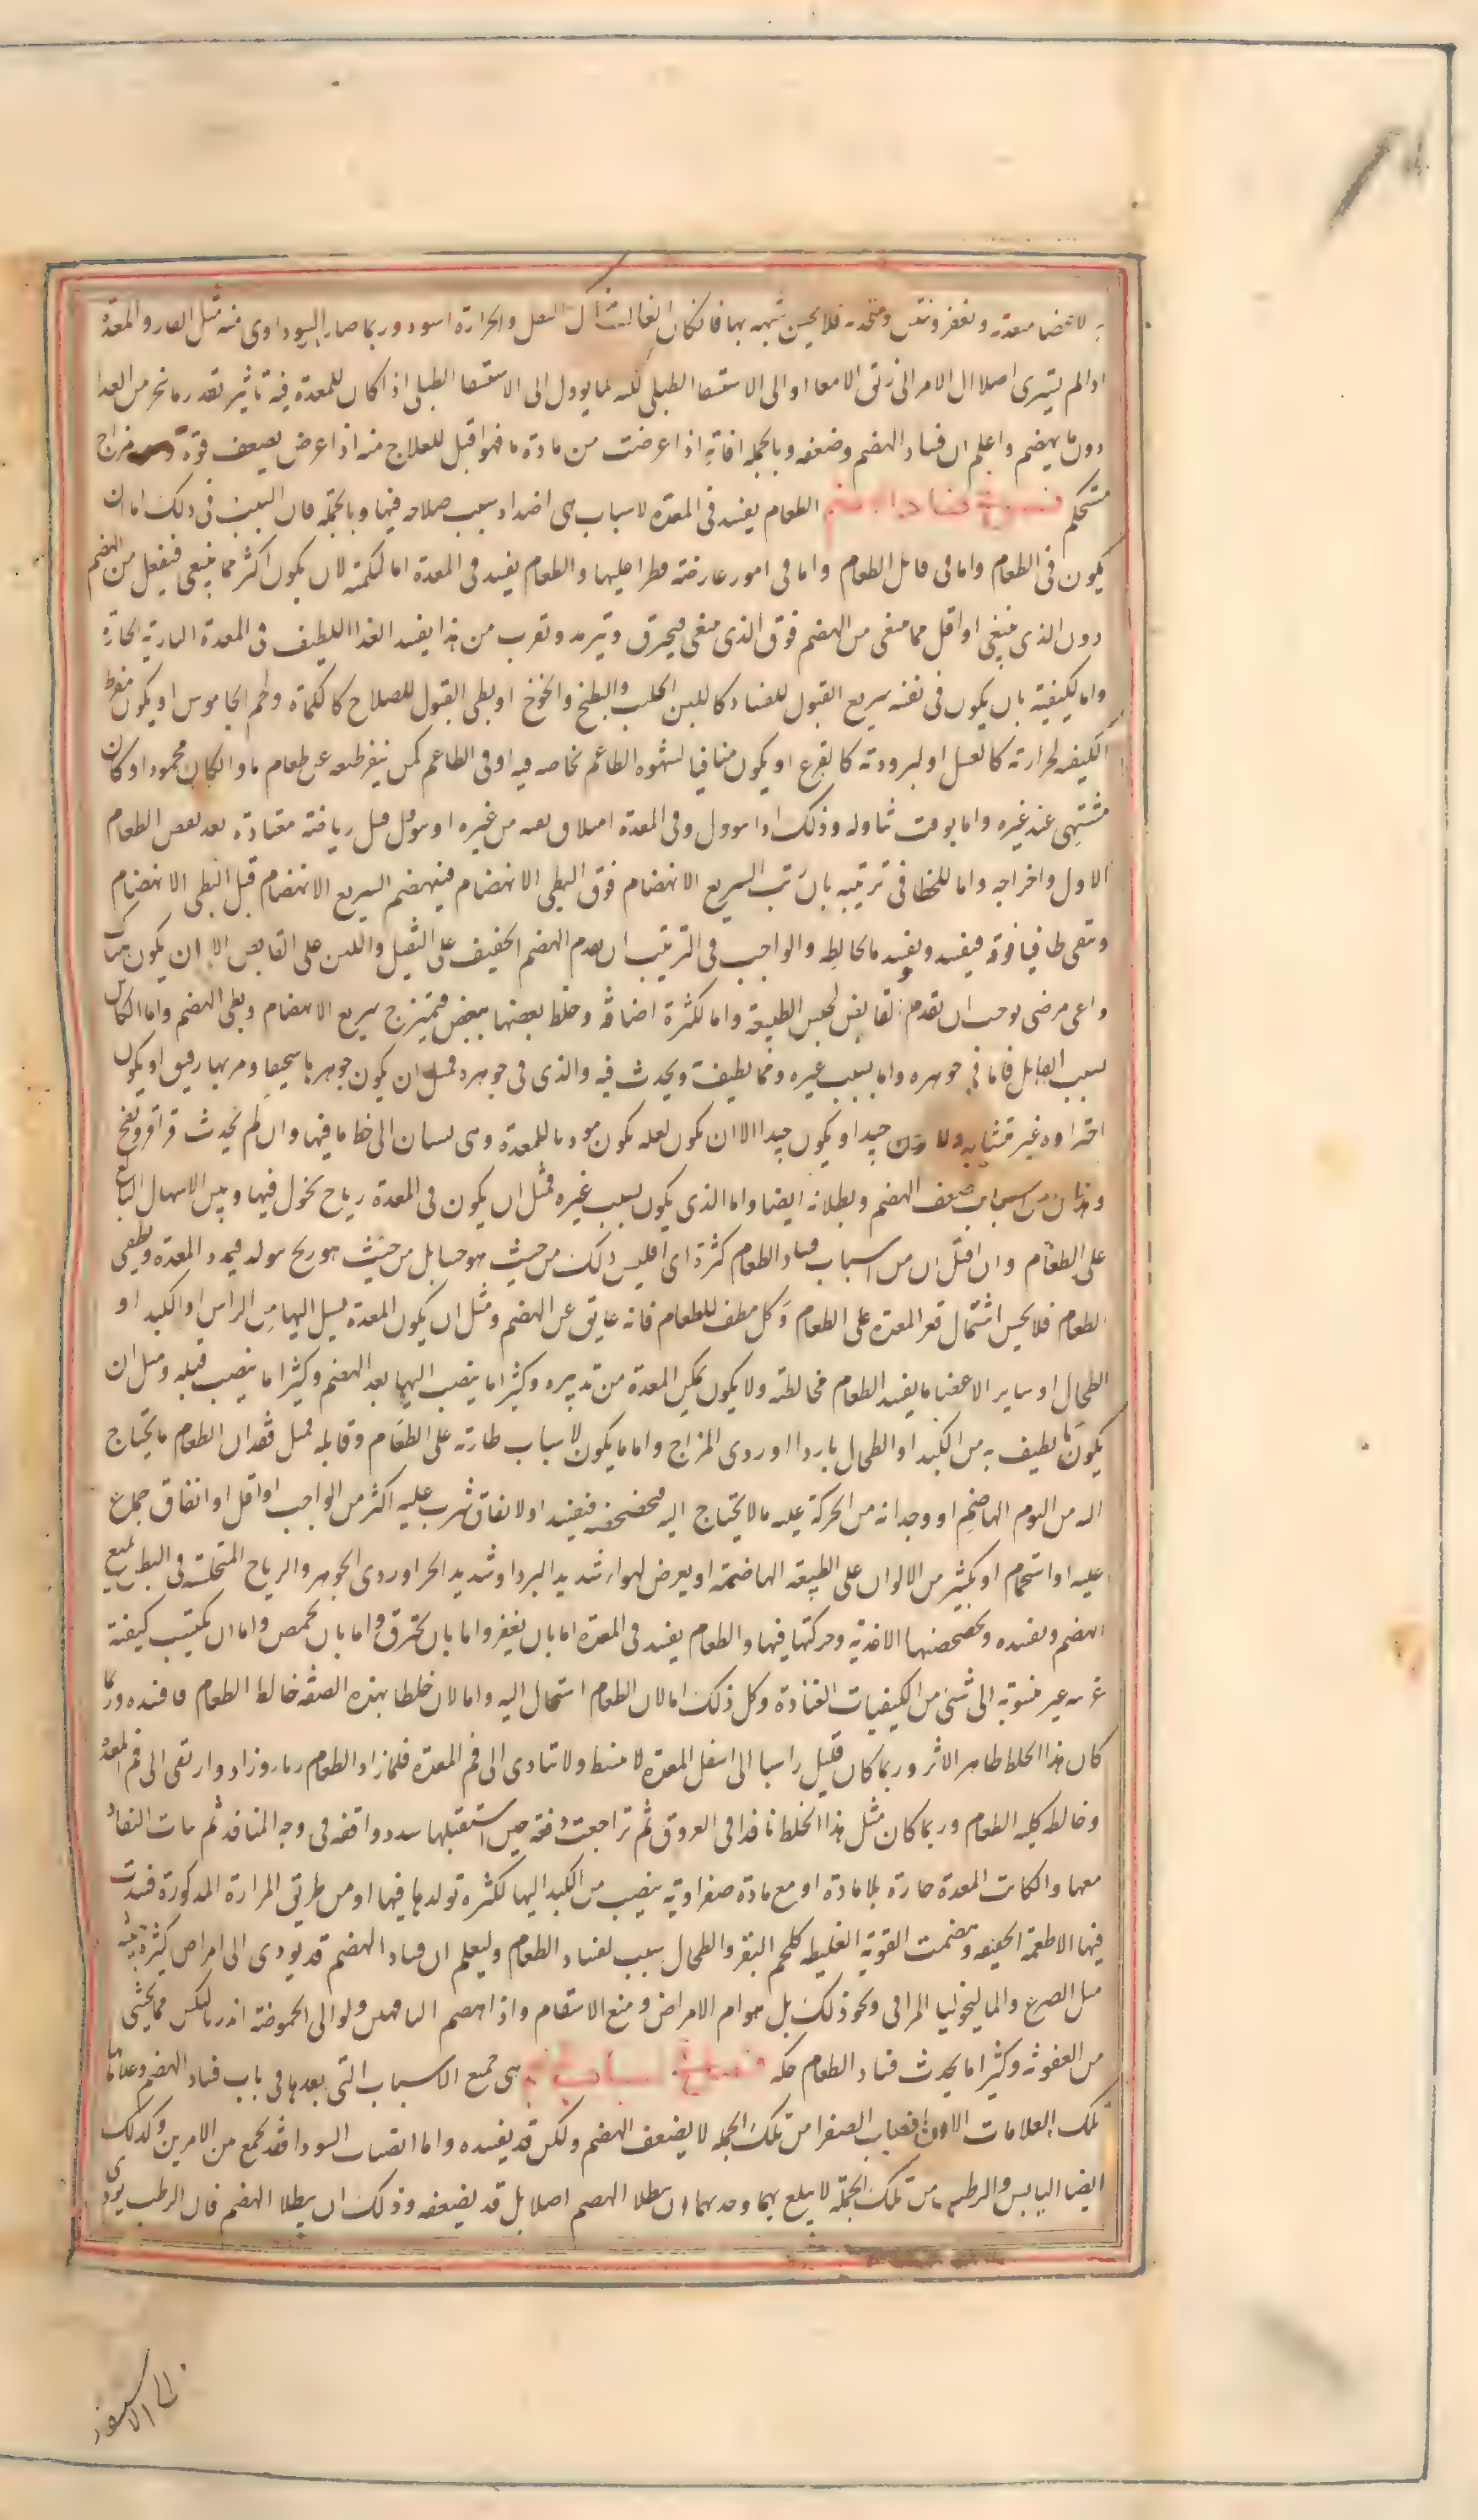 لاعضا معدته وتغفر ونتن ومتحده فلا يحسن شبهه بها فانكان الغالب والحرارة اسود وربما صار السوداوى منه مثل القار والمعدة
اذا لم يستمرى اصلا ال الامر الى زلق الامعا او الى الاستسقا الطبلى لكنه لما يوول الى الاستسقا الطبلى اذا كان للمعدة فيه تاثير بقدر ما نحر من الغدا
دون ما يهضم واعلم ان فساد الهضم وضعفه وبالجملة افاته اذا عرضت من مادة ما فهو اقبل للعلاج منه اذا عرض لضعف قوة مزاج
مستحكم فصل فى فساد الهضم الطعام يفسد فى المعدة لاسباب هى اضداد سبب صلاحه فيها وبالجملة فان السبب فى ذلك اما ان
يكون فى الطعام واما فى قابل الطعام واما فى امور عارضه تطرا عليها والطعام يفسد فى المعدة اما لكمية لان يكون اكثر مما ينبغى فينفعل من الهضم
دون الذى ينبغى او اقل مما ينبغى فينفعل من الهضم فوق الذى ينبغى فيحترق ويترمد وبقرب من هذا يفسد الغدا اللطيف فى المعدة النارية الحارة
واما لكيفيته بان يكون فى نفسه سريع القبول للفساد كاللبن الحليب والبطيخ والخوخ او بطى القبول للصلاح كالكمأة ولحم الجاموس او يكون مفرط
الكيفيه لحرارته كالعسل او لبرودته كالقرع او يكون منافيا لشهوه الطاعم بخاصه فيه او فى الطاعم كمن ينفر طبعه عن طعام ما وان كان محمودا او كان
مشتهى عند غيره واما بوقت تناوله وذلك اذا تنوول وفى المعدة امتلا او بقيه من غيره او تنوول قبل رياضة معتادة بعد نفض الطعام
الاول واخراجه واما للخطا فى ترتيبه بان يرتب السريع الانهضام فوق البطى الانهضام فينهضم السريع الانهضام قبل البطى الانهضام
ويبقى طافيا فوقه فيفسد ويفسد ما يخالطه والواجب فى الترتيب ان يقدم الخفيف على الثقيل واللين على القابض الا ان يكون هناك
داعى مرضى يوجب ان تقدم القابض لحبس الطبيعة واما لكثرة اصنافه وخلط بعضها ببعض فيمتزج سريع الانهضام وبطى الهضم واما الكاين
بسبب القابل فاما فى جوهره واما بسبب غيره ومما يطيف ويحدث فيه والذى فى جوهره فمثل ان يكون جوهرها سخيفا ومربها رقيق او يكون
احتواوه غير متشابه ولا جيدا او يكون جيدا الا ان يكون ثقله يكون موذيا للمعدة وهى تستاق الى حط ما فيها وان لم يحدث قراقر ونفخ
وهذان من اسباب ضعف الهضم وبطلانه ايضا واما الذى يكون بسبب غيره فمثل ان يكون فى المعدة رياح يحول فيها وبين الاشتمال البالغ
على الطعام وان اقبل ان من اسباب فساد الطعام كثرة الجشا فليس ذلك من حيث هو جشا بل من حيث هو ريح يتولد فيمدد المعدة ويطفى
الطعام فلا يحسن اشتمال قعر المعدة على الطعام وكل مطف للطعام فانه عايق عن الهضم ومثل ان يكون المعدة يسيل اليها من الراس او الكبد او
الطحال او ساير الاعضا ما يفسد الطعام لمخالطته ولا يكون يمكن المعدة من تدبيره وكثيرا ما ينصب اليها بعد الهضم وكثيرا ما ينصب قبله ومثل ان
يكون ما يطيف به من الكبد او الطحال باردا او ردى المزاج واما ما يكون لاسباب طارية على الطعام وقابله فمثل فقدان الطعام ما يحتاج
اليه من النوم الهاضم او وجدانه من الحركة عليه ما لا يحتاج اليه فيخضخضه فيفسد او لاتفاق شرب عليه اكثر من الواجب او اقل او اتفاق جماع
عليه او استحمام او تكثير من الالوان على الطبيعه الهاضمة او يعرض لهواء شديد البرد او شديد الحر او ردى الجوهر والرياح المتحلبة فى البطن تمنع
الهضم وتفسده وبخضخضتها الاغذية وحركتها فيها والطعام يفسد فى المعدة اما بان يغفر واما بان يحترق واما بان يحمض واما ان يكتسب كيفية
غريبه غير منسوبة الى شئ من الكيفيات المعتادة وكل ذلك اما لان الطعام استحال اليه واما لان خلطا بهذه الصفه خالط الطعام فافسده وربما
كان هذا الخلط ظاهر الاثر وربما كان قليلا راسبا الى اسفل المعدة لا ينبسط ولا يتادى الى فم المعدة فلما زاد الطعام ربا وزاد وارتقى الى فم المعدة
وخالط كليه الطعام وربما كان مثل هذا الخلط نافذا فى العروق ثم تراجعت دفعة حين استقبلها سدد واقفه فى وجه المنافذ ثم مات النفاذ
معها وان كانت المعدة حارة بلا مادة او مع مادة صفراوية ينصب من الكبد اليها لكثرة تولدها فيها او من طريق المرارة المذكورة فسدت
فيها الاطعمة الخفيفه وهضمت القوية الغليظه كلحم البقر والطحال سبب لفساد الطعام وليعلم ان فساد الهضم قد يودى الى امراض كثيرة خبيثه
مثل الصرع والماليخوليا المراقى ونحو ذلك بل هو ام الامراض ومنبع الاسقام واذا انهضم الناقهين ولو الى الحموضة انذر بالنكس مما يخشى
من العفونة وكثيرا ما يحدث فساد الطعام حكه فصل فى اسباب هى جميع الاسباب التى بعدها فى باب فساد الهضم وعلاماتها
تلك العلامات الا ان انصباب الصفرا من تلك الجمله لا يضعف الهضم ولكن قد يفسده واما انصباب السودا فقد يجمع من الامرين وكذلك
ايضا اليابس والرطب من تلك الجملة لا يبلغ بهما وحدهما ان يبطلا الهضم اصلا بل قد يضعفه وذلك ان يبطلا الهضم فان الرطب يودى